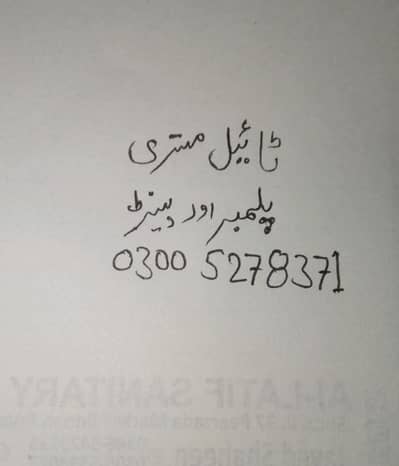 ٹائیل مستری
پلمبر اور پینٹ
0300 5278371
AL-LATIF SANITARY